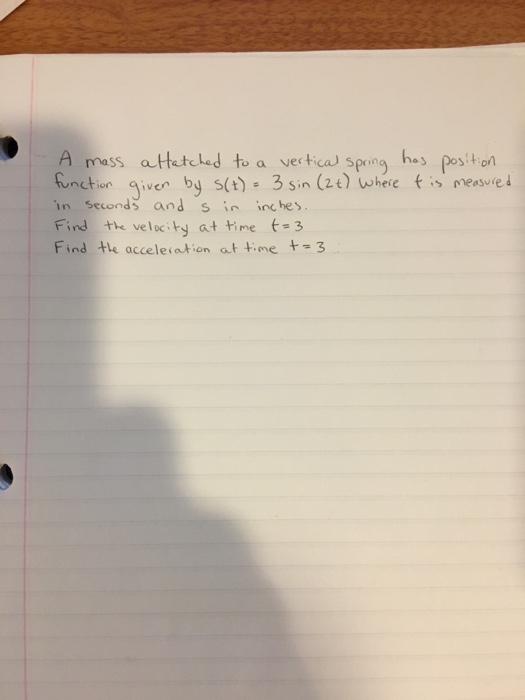 A mass attatched to a vertical spring has position
function given by s(t) = 3 sin (2t) where t is measured
in seconds and s in inches.
Find the velocity at time t = 3
Find the acceleration at time t = 3